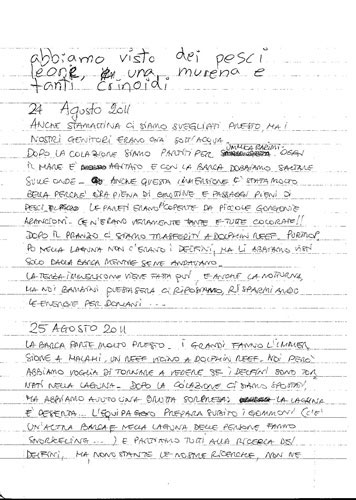 abbiamo visto dei pesci
leone, una murena e
tanti crinoidi
24 Agosto 2011
ANCHE STAMATTINA CI SIAMO SVEGLIATI PRESTO, MA I
NOSTRI GENITORI ERANO GIÀ SOTT'ACQUA.
DOPO LA COLAZIONE SIAMO PARTITI PER OGGI
IL MARE E' AGITATO E CON LA BARCA DOBBIAMO SALTARE
SULLE ONDE - ANCHE QUESTA IMMERSIONE C'È STATA MOLTO
BELLA PERCHÉ ERA PIENA DI GROTTINE E PASSAGGI PIENI DI
PESCI, LE PARETI ERANO COPERTE DA PICCOLE GORGONIE
ARANCIONI. CE N'ERANO VERAMENTE TANTE E TUTTE COLORATE!!
DOPO IL PRANZO CI SIAMO TRASFERITI A DOLPHIN REEF. PURTROP-
PO NELLA LAGUNA NON C'ERANO I DELFINI, MA LI ABBIAMO VISTI
SOLO DALLA BARCA MENTRE SE NE ANDAVANO.
LA TERZA IMMERSIONE VIENE FATTA QUI, E ANCHE LA NOTTURNA,
MA NOI BAMBINI QUESTA SERA CI RIPOSIAMO, RISPARMIANDO
LE ENERGIE PER DOMANI...
25 AGOSTO 2011
LA BARCA PARTE MOLTO PRESTO. I GRANDI FANNO L'IMMER
SIONE A MALAHI, UN REEF VICINO A DOLPHIN REEF. NOI PERÒ
ABBIAMO VOGLIA DI TORNARE A VEDERE SE I DELFINI SONO TOR
NATI NELLA LAGUNA. DOPO LA COLAZIONE CI SIAMO SPOSTATI,
MA ABBIAMO AVUTO UNA BRUTTA SORPRESA: LA LAGUNA
È DESERTA... L'EQUIPAGGIO PREPARA SUBITO I GOMMONI (C'È
UN'ALTRA BARCA E NELLA LAGUNA DELLE PERSONE FANNO
SNORKELING...) E PARTIAMO TUTTI ALLA RICERCA DEI
DELFINI, MA NONOSTANTE LE NOSTRE RICERCHE, NON NE